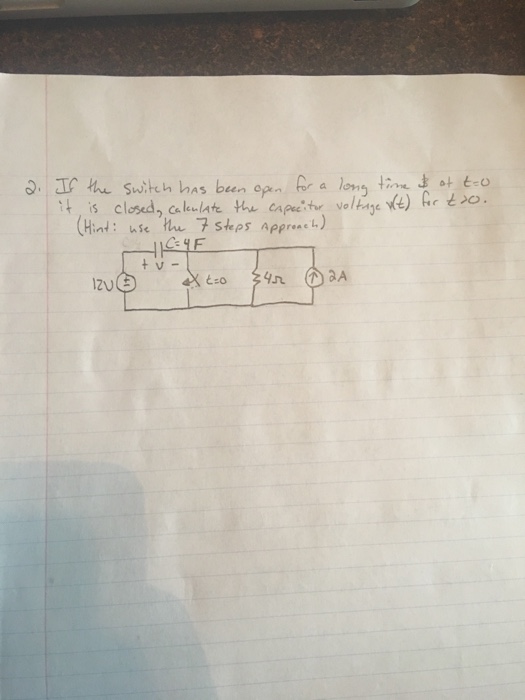 2. If the switch has been open for a long time & at t=0
it is closed, calculate the capacitor voltage v(t) for t>0.
(Hint: use the 7 steps approach)
C=4F
+ v -
12V
+
-
t=0
4Ω
2A